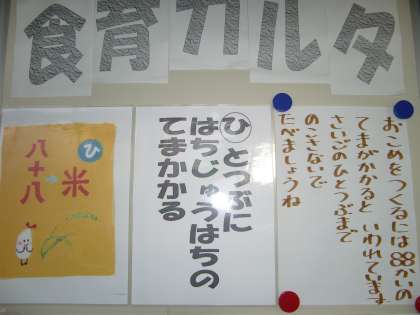 食育カルタ
ひ
米
八十八
ひとつぶに
はちじゅうはちの
てまかかる
おこめをつくるには88かいの
てまがかかると いわれています
さいごのひとつぶまで
のこさないで
たべましょうね